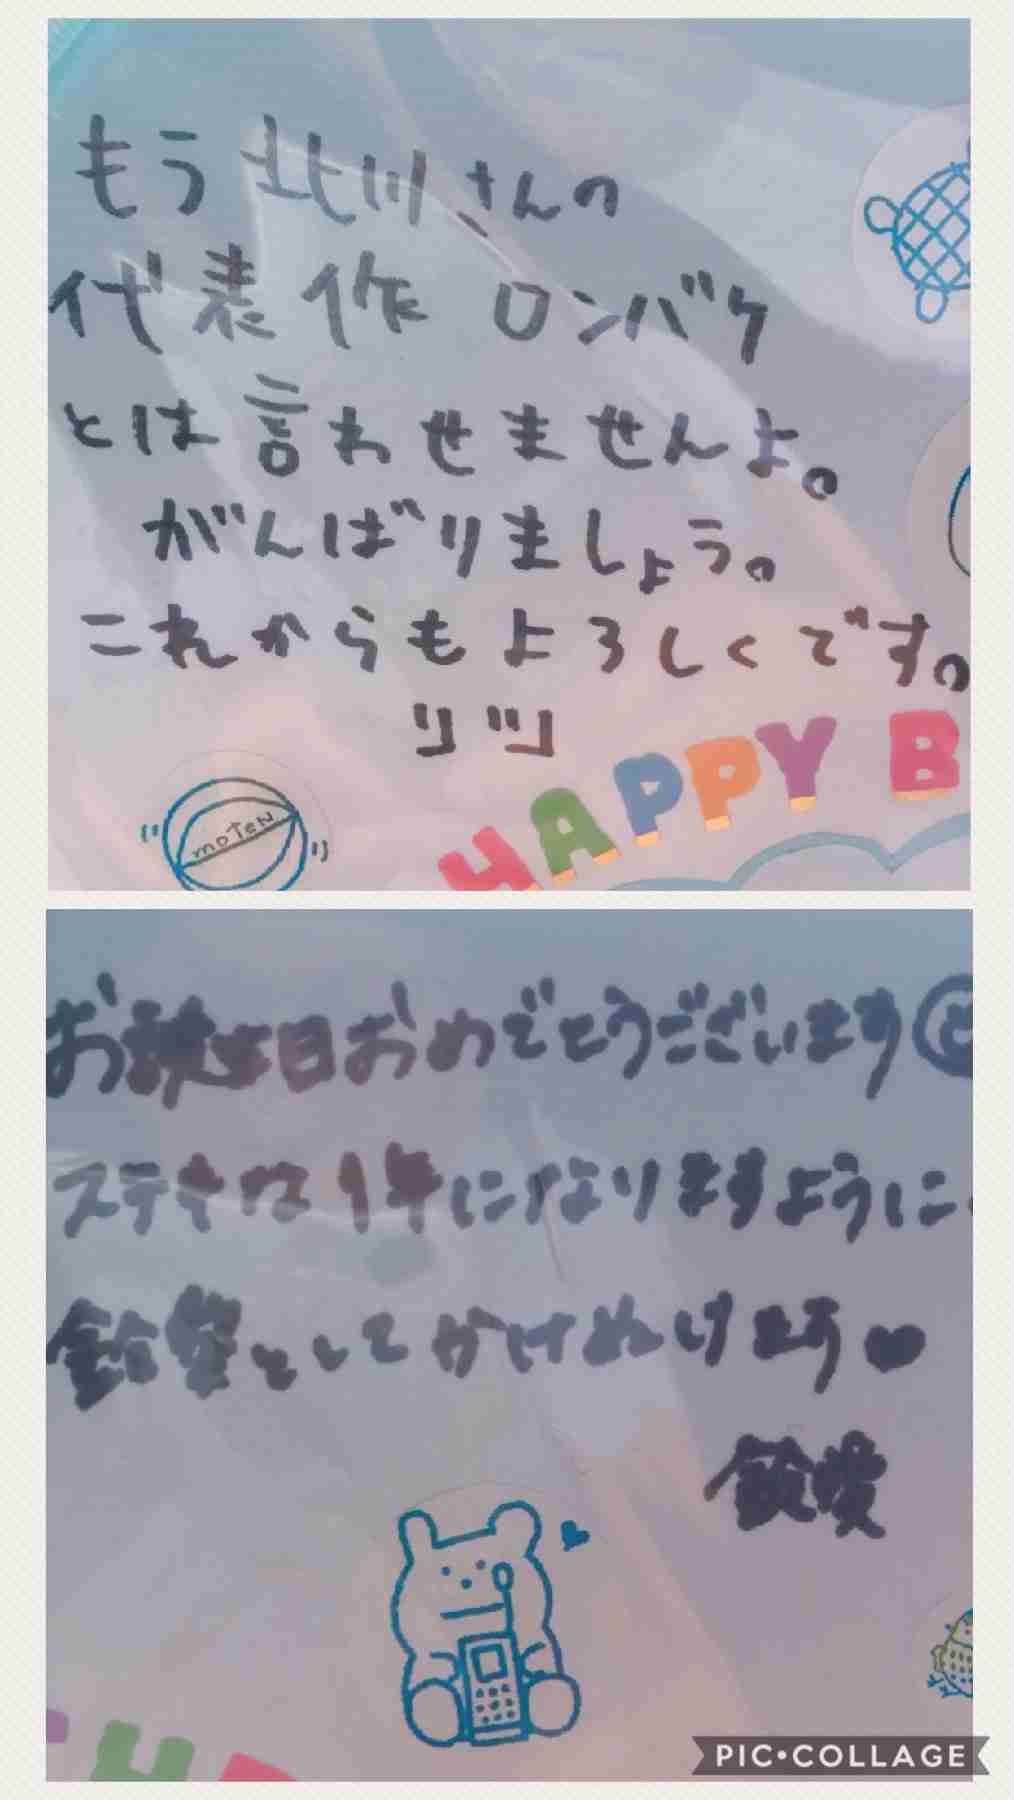 もう北川さんの
代表作ロンバケ
とは言わせませんよ。
がんばりましょう。
これからもよろしくです。
リツ
moTeN
HAPPY B
お誕生日おめでとうございます
ステキな1年になりますように
鈴愛としてかけぬけます♥
鈴愛
TH
PIC•COLLAGE